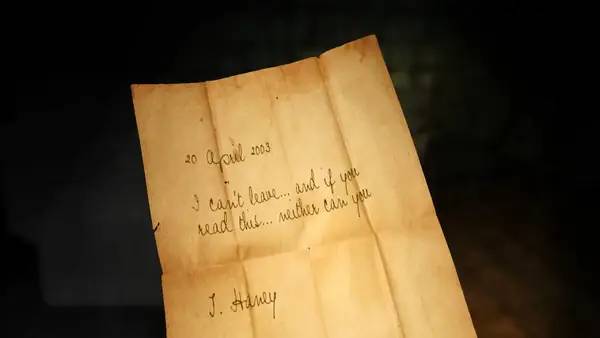 20 April 2003
I can't leave... and if you
read this... neither can you
J. Haney